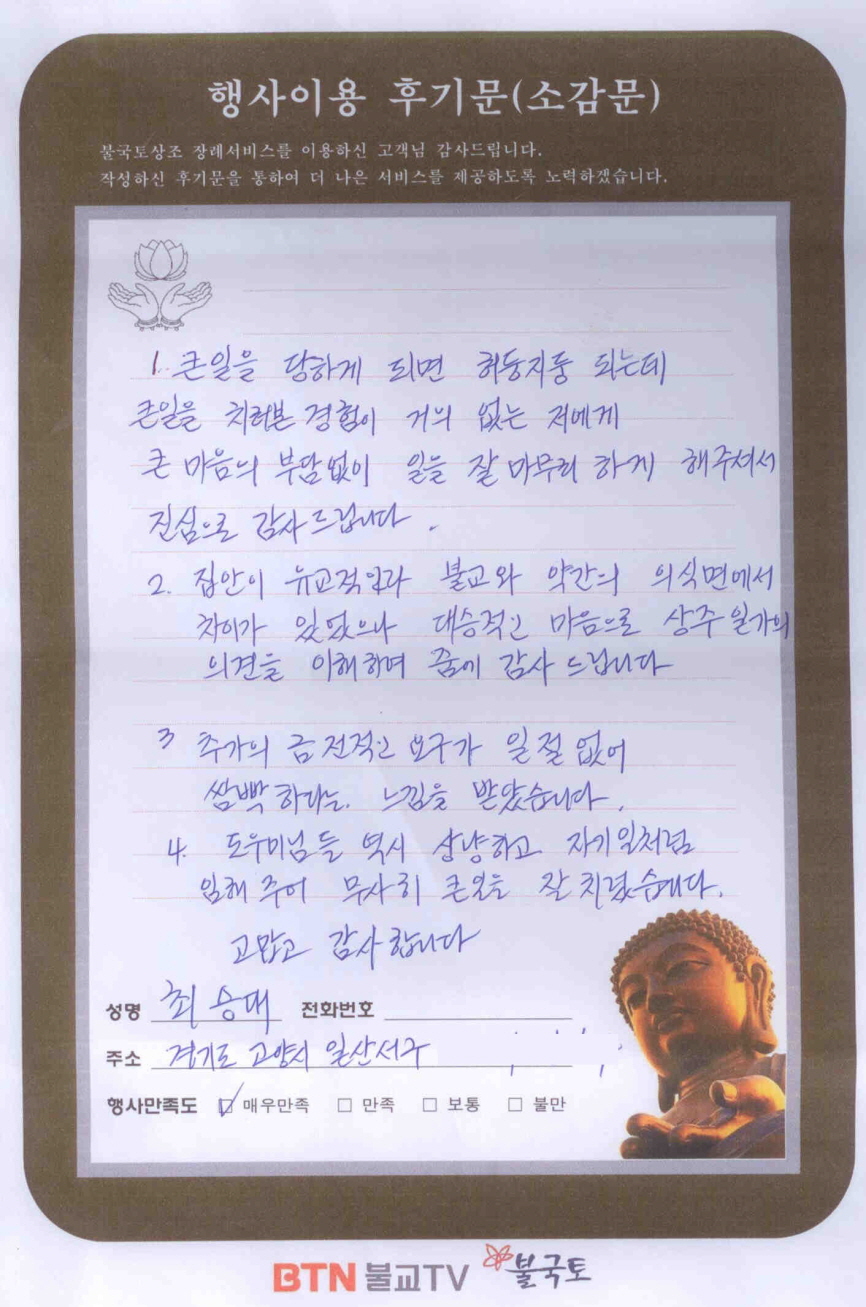 행사이용 후기문(소감문)
불국토상조 장례서비스를 이용하신 고객님 감사드립니다.
작성하신 후기문을 통하여 더 나은 서비스를 제공하도록 노력하겠습니다.
1. 큰일을 당하게 되면 허둥지둥 되는데
큰일을 치러본 경험이 거의 없는 저에게
큰 마음의 부담없이 일을 잘 마무리 하게 해주셔서
진심으로 감사드립니다.
2. 집안이 유교적이라 불교와 약간의 의식면에서
차이가 있었으나 대승적인 마음으로 상주일가의
의견을 이해하여 줌에 감사 드립니다
3 추가의 금전적인 요구가 일절 없어
쌈빡하다는 느낌을 받았습니다.
4. 도우미님들 역시 상냥하고 자기일처럼
임해 주어 무사히 큰일을 잘 치렀습니다.
고맙고 감사합니다
성명 최승대 전화번호
주소 경기도 고양시 일산서구
행사만족도 매우만족 만족 보통 불만
BTN 불교TV 불국토